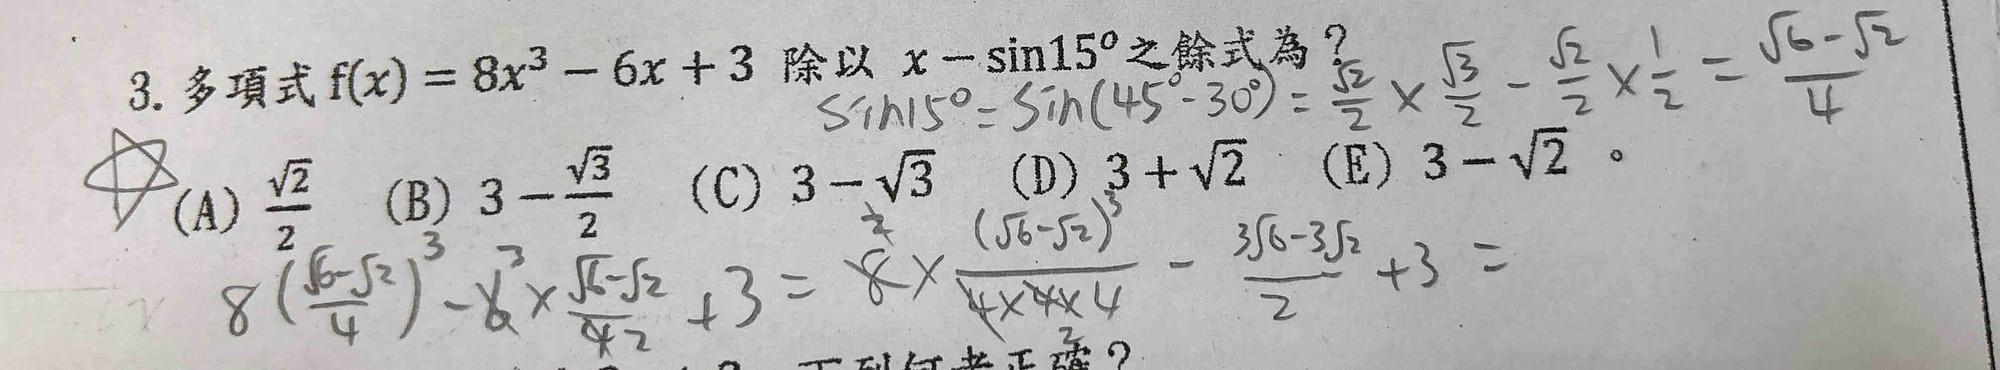 3. 多項式 f(x) = 8x³ − 6x + 3 除以 x − sin15° 之餘式為？
sin15° = sin(45° - 30°) = √2/2 × √3/2 - √2/2 × 1/2 = (√6 - √2)/4
(A) √2/2 (B) 3 − √3/2 (C) 3 − √3 (D) 3 + √2 (E) 3 − √2 。
8((√6-√2)/4)³ - 6 3 × (√6-√2)/4 2 + 3 = 8 2 × (√6-√2)³/(4×4×4 2) - (3√6-3√2)/2 + 3 =
下列何者正確？